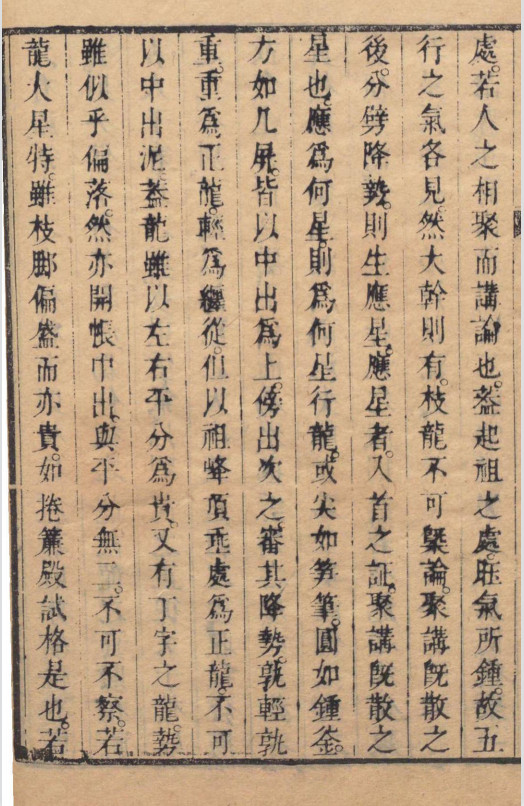 處。若人之相聚而講論也。蓋起祖之處。旺氣所鍾。故五
行之氣各見。然大幹則有。枝龍不可槩論。聚講旣散之
後。分劈降勢。則生應星。應星者。入首之証。聚講旣散之
星也。應爲何星。則爲何星行龍。或尖如笋筆。圓如鍾釜。
方如几屏。皆以中出爲上。傍出次之。審其降勢。孰輕孰
重。重爲正龍。輕爲纏從。但以祖峰頂乖處爲正龍。不可
以中出泥。蓋龍雖以左右平分爲貴。又有丁字之龍。勢
雖似乎偏落。然亦開帳中出。與平分無二。不可不察。若
龍大星特。雖枝脚偏盛而亦貴。如捲簾殿試格是也。若